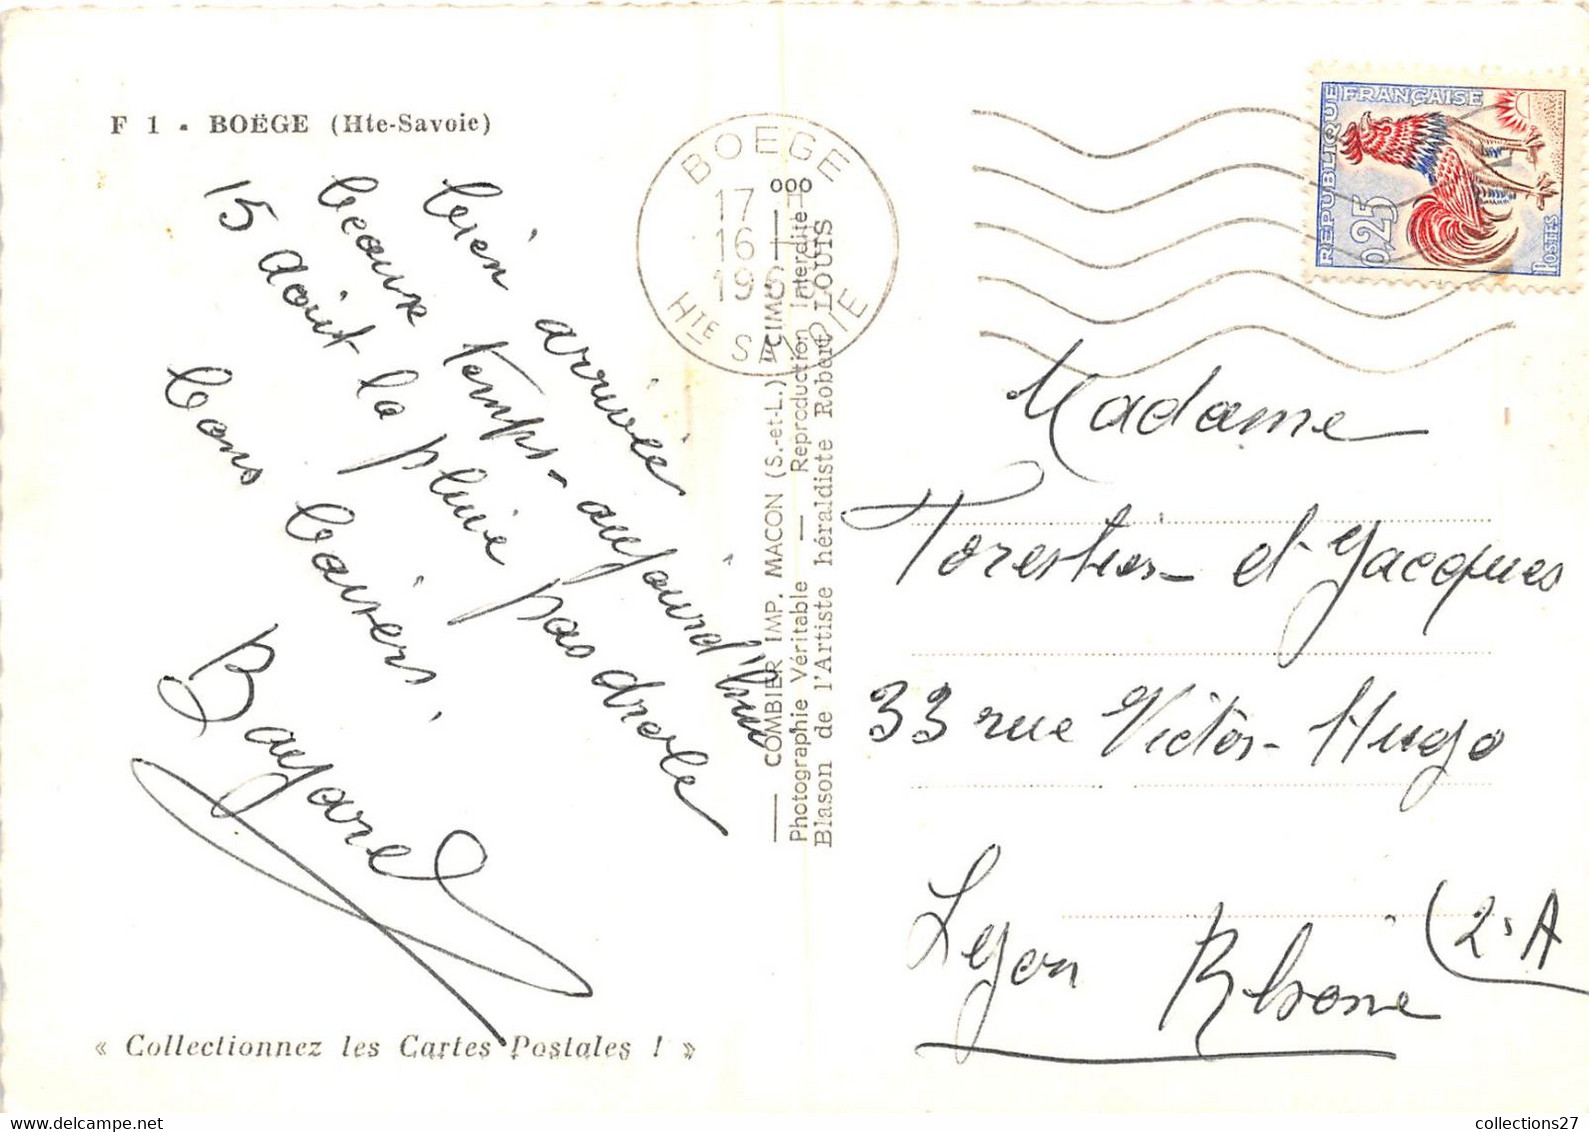 F 1 - BOËGE (Hte-Savoie)
bien arrivée
beaux temps - aujourd'hui
15 août la pluie pas drole
bons baisers,
Bayard
« Collectionnez les Cartes Postales ! »
BOEGE
17 H
16 - 8
196
HTE SAVOIE
— COMBIER IMP. MACON (S.-et-L.) "CIM"
Photographie Véritable — Reproduction Interdite
Blason de l'Artiste héraldiste Robert LOUIS
REPUBLIQUE FRANÇAISE
0,25
POSTES
Madame
Forestier et Jacques
33 rue Victor-Hugo
Lyon Rhone (2e A
collections27